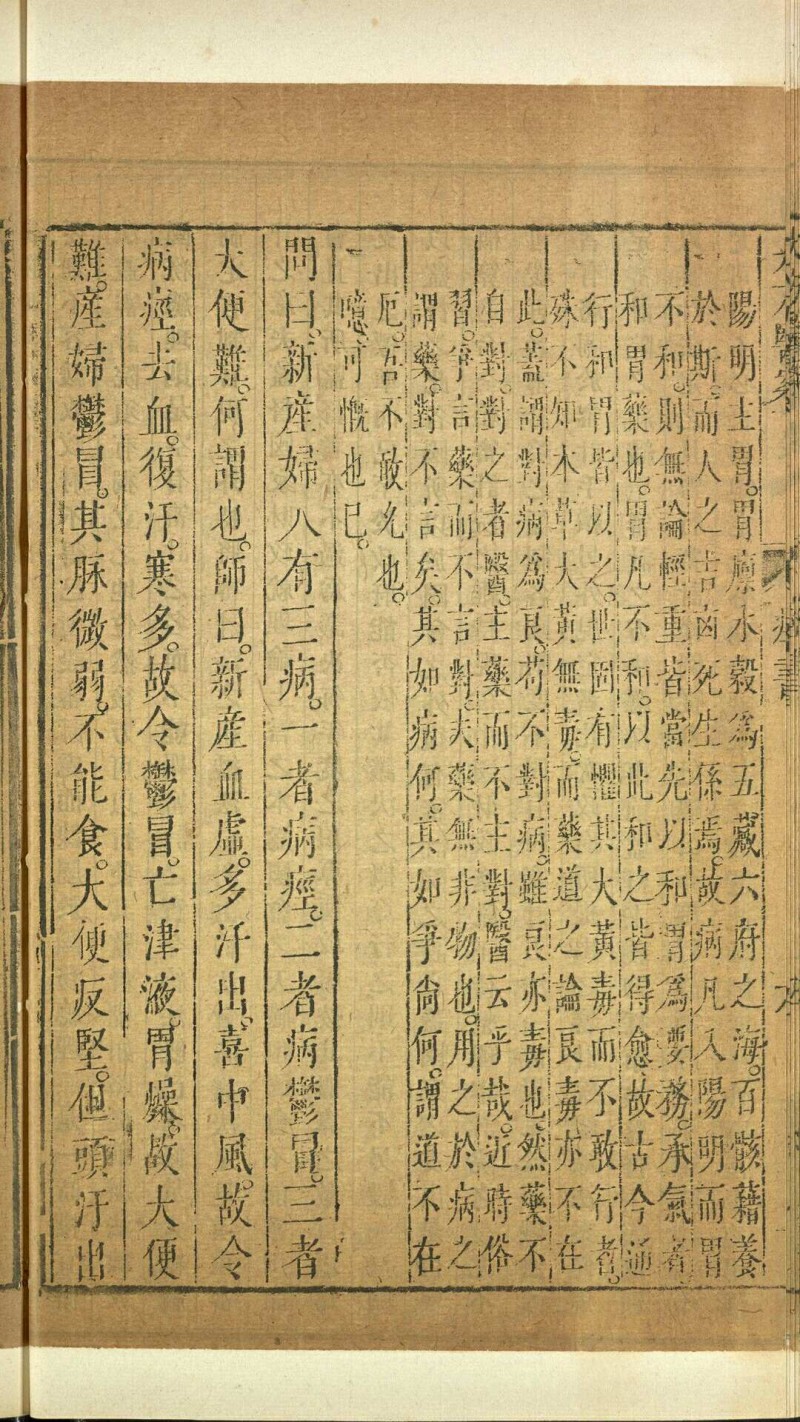 陽明主胃。胃廩水穀。為五藏六府之海。百骸藉養
於斯。而人之吉凶死生係焉。故病凡入陽明而胃
不和。則無論輕重皆當先以和胃為要務。承氣者
和胃藥也。胃凡不和。以此和之皆得愈故古今通
行和胃皆以之。世固有懼其大黃毒而不敢行者。
殊不知本草大黃無毒。而藥道之論良毒亦不在
此。蓋謂對病為良。苟不對病。雖良亦毒也。然藥不
自對。對之者醫。主藥而不主對。醫云乎哉。近時俗
習。爭言藥而不言對。夫藥無非物也。用之於病之
謂藥。對不言矣。其如病何。其如爭尚何。謂道不在
厄。吾不敢允也。
噫。可慨也已。
問曰。新產婦人有三病。一者病痙。二者病鬱冒。三者
大便難。何謂也。師曰。新產血虛。多汗出。喜中風。故令
病痙。去血。復汗。寒多。故令鬱冒。亡津液。胃燥。故大便
難。產婦鬱冒。其脉微弱。不能食。大便反堅。但頭汗出